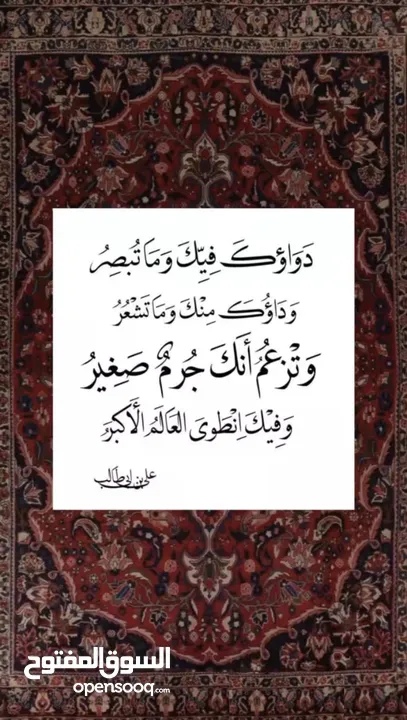 دَوَاؤكَ فِيْكَ وَمَا تُبصِرُ
وَدَاؤُكَ مِنْكَ وَمَا تَشْعُرُ
وَتْزعُمُ أنَكَ جُرمٌ صَغِيرُ
وَفِيْكَ اِنْطَوىَ العَالَمُ الْأَكْبَرُ
علي بن ابي طالب
السوق المفتوح
opensooq.com